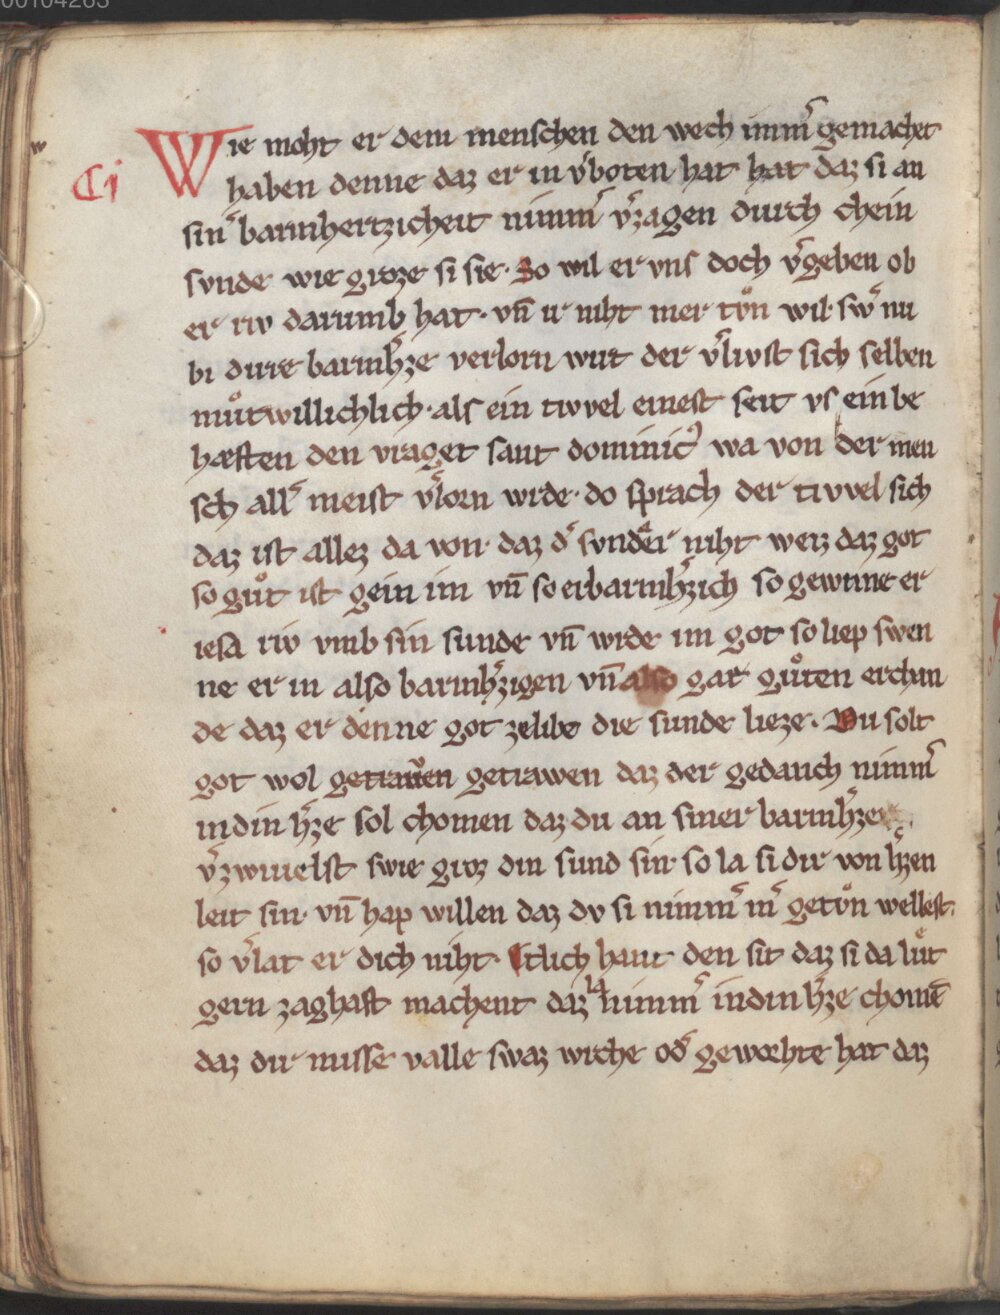 00104263
Wie moht er dem menschen den wech imm̄ gemachet
Ci haben denne daz er in v̄boten hat hat daz si an
sin̄ barmhertzicheit nimm̄ v̄zagen durch chein
svnde wie groze si sie · So wil er vns doch v̄geben ob
er riv darumb hat · vn̄ ir niht mer tůn wil · sw̄ nu
bi dirre barmh̄ze verlorn wirt der v̄livst sich selben
můtwillichlich · als ein tivvel einest seit vs ein be
hæften den vraget sant dominic᾽ wa von der men
sch all̄ meist v̄lorn wrde · do sprach der tivvel sich
daz ist allez da von · daz d̄ svnder niht weiz daz got
so gůt ist gein im vn̄ so erbarmh̄zich so gewnne er
iesa riv vmb sin sunde vn̄ wrde im got so liep swen
ne er in also barmh̄zigen vn̄ also gar gůten erchan
de daz er denne got zelibe die sunde lieze · Du solt
got wol getrauen getrawen daz der gedanch nimm̄
in din h̄ze sol chomen daz du an siner barmh̄ze
v̄zwiuelst swie groz din sund sin · so la si dir von h̄zen
leit sin · vn̄ hap willen daz dv si nimm̄ m̄ getůn wellest ·
so v̄lat er dich niht · Etlich haut den sit daz si da lůt
gern zaghaft machent daz la nimm̄ in din h̄ze chomē
daz dir misse valle swaz wrche od̄ geworhte hat daz